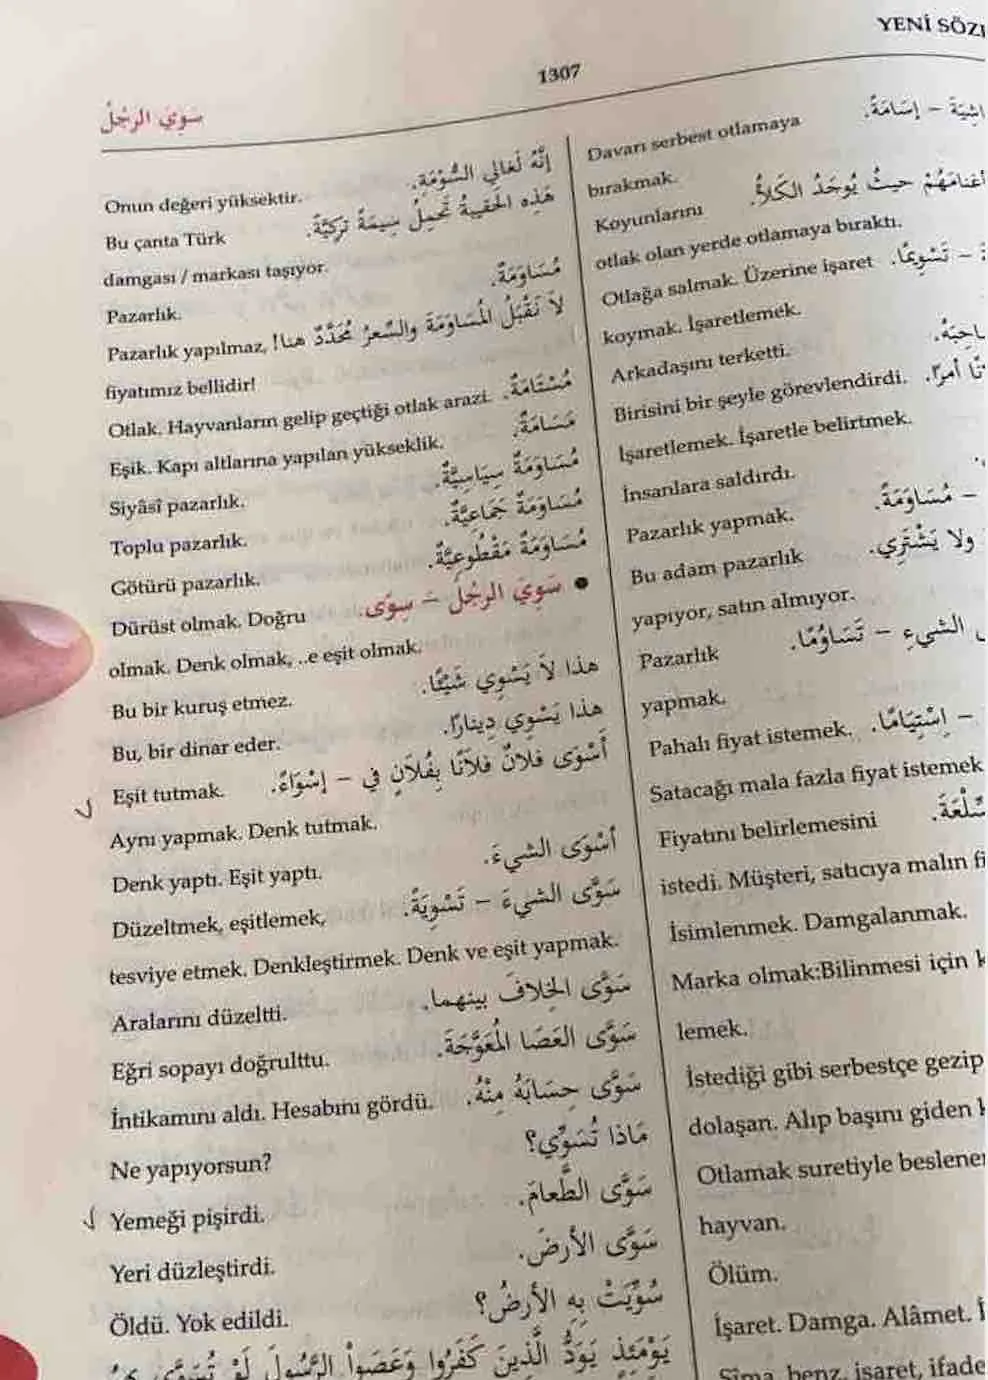 YENİ SÖZ
1307
سَوِيَ الرَّجُلُ
إِنَّهُ لَغَالِي السُّوْمَةِ.
Onun değeri yüksektir.
هَذِهِ الحَقِيبةُ تَحمِلُ سِيمَةً تُركِيَّةً.
Bu çanta Türk
damgası / markası taşıyor.
مُسَاوَمَةٌ.
Pazarlık.
لاَ نَقْبَلُ المُسَاوَمَةَ والسِّعرُ مُحَدَّدٌ هنا!
Pazarlık yapılmaz,
fiyatımız bellidir!
مُسْتَامَةٌ.
Otlak. Hayvanların gelip geçtiği otlak arazi.
مَسَامَةٌ.
Eşik. Kapı altlarına yapılan yükseklik.
مُسَاوَمَةٌ سِيَاسِيَّةٌ.
Siyâsî pazarlık.
مُسَاوَمَةٌ جَمَاعِيَّةٌ.
Toplu pazarlık.
مُسَاوَمَةٌ مَقْطُوعِيَّةٌ.
Götürü pazarlık.
• سَوِيَ الرجُلُ – سِوًى.
Dürüst olmak. Doğru
olmak. Denk olmak, ..e eşit olmak.
هذا لاَ يَسْوِي شَيْئًا.
Bu bir kuruş etmez.
هذا يَسْوِي دِينارًا.
Bu, bir dinar eder.
أَسْوَى فلانٌ فلاَنًا بِفُلاَنٍ في – إِسْوَاءً.
Eşit tutmak.
Aynı yapmak. Denk tutmak.
أَسْوَى الشيءَ.
Denk yaptı. Eşit yaptı.
سَوَّى الشيءَ – تَسْوِيَةً.
Düzeltmek, eşitlemek,
tesviye etmek. Denkleştirmek. Denk ve eşit yapmak.
سَوَّى الخِلافَ بينهما.
Aralarını düzeltti.
سَوَّى العَصَا المُعَوَّجَةَ.
Eğri sopayı doğrulttu.
سَوَّى حِسَابَهُ مِنْهُ.
İntikamını aldı. Hesabını gördü.
مَاذا تُسَوِّي؟
Ne yapıyorsun?
سَوَّى الطَّعامَ.
Yemeği pişirdi.
سَوَّى الأرضَ.
Yeri düzleştirdi.
سُوِّيَتْ بِهِ الأرضُ؟
Öldü. Yok edildi.
يَوْمَئِذٍ يَوَدُّ الَّذِينَ كَفَرُوا وَعَصَوُاْ الرَّسُولَ لَوْ تُسَوَّى
– إِسَامَةً.
Davarı serbest otlamaya
bırakmak.
حيثُ يُوجَدُ الكَلأُ.
Koyunlarını
otlak olan yerde otlamaya bıraktı.
– تَسْوِيمًا.
Otlağa salmak. Üzerine işaret
koymak. İşaretlemek.
Arkadaşını terketti.
أمرًا.
Birisini bir şeyle görevlendirdi.
İşaretlemek. İşaretle belirtmek.
İnsanlara saldırdı.
– مُسَاوَمَةً.
Pazarlık yapmak.
ولا يَشْتَرِي.
Bu adam pazarlık
yapıyor, satın almıyor.
الشيءِ – تَسَاوُمًا.
Pazarlık
yapmak.
– اسْتِيَامًا.
Pahalı fiyat istemek.
Satacağı mala fazla fiyat istemek
Fiyatını belirlemesini
istedi. Müşteri, satıcıya malın
İsimlenmek. Damgalanmak.
Marka olmak:Bilinmesi için
lemek.
İstediği gibi serbestçe gezip
dolaşan. Alıp başını giden
Otlamak suretiyle beslenen
hayvan.
Ölüm.
İşaret. Damga. Alâmet.
Sîma, benz, işaret, ifade